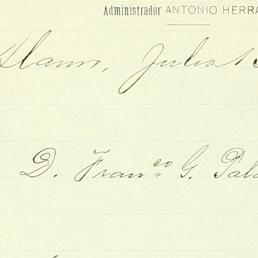 Administrador ANTONIO HERRA
Llano, Julio 1
D. Fran.co G. Pala